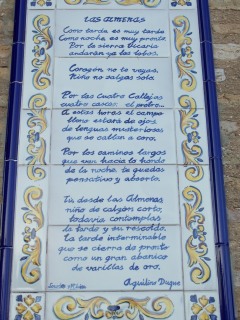 LAS ALMENAS
Como tarde es muy tarde
Como noche es muy pronto
Por la sierra
andarán ya los lobos.
Corazón, no te vayas,
Niño no salgas solo.
Por las cuatro Callejas
cuatro cascos: el potro...
A estas horas el campo
lleno estará de ojos,
de lenguas misteriosas
que se callan a coro.
Por los caminos largos
que van hacia lo hondo
de la noche, te quedas
pensativo y absorto.
Tu desde las Almenas
niño de calzón corto,
todavía contemplas
la tarde y su rescoldo,
la tarde interminable
que se cierra de pronto
como un gran abanico
de varillas de oro.
Aquilino Duque